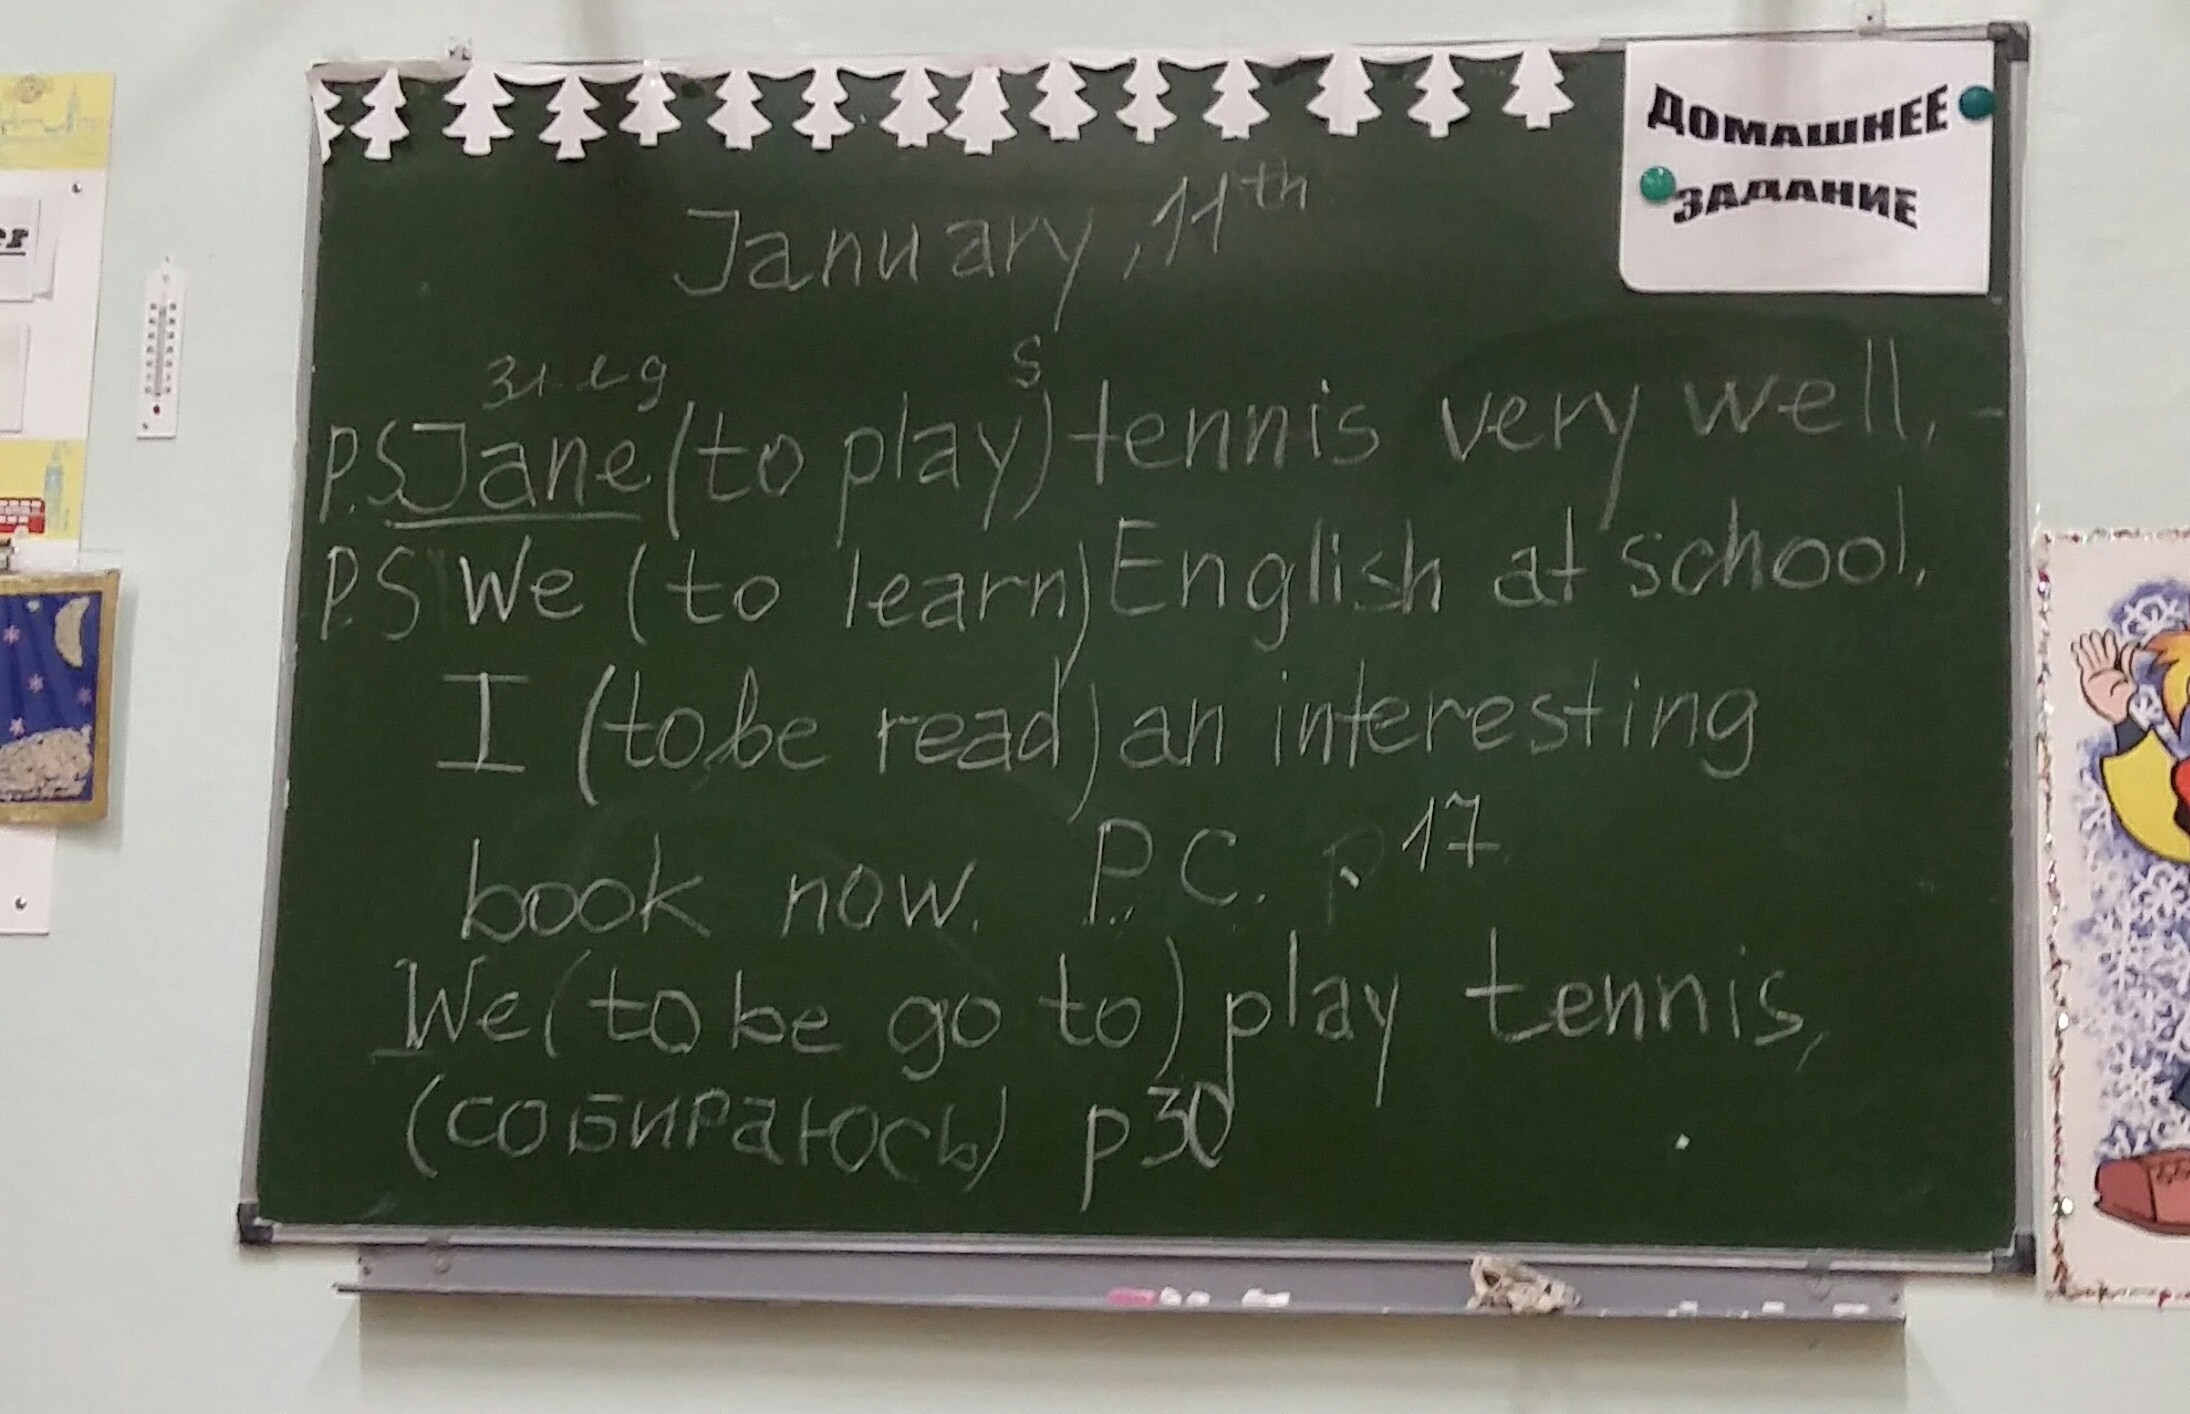 ДОМАШНЕЕ
ЗАДАНИЕ
January, 11th
3л ед s
P.S Jane (to play) tennis very well.
P.S We (to learn) English at school.
I (to be read) an interesting
book now. P.C. p 17
We (to be go to) play tennis,
(собираюсь) p 30